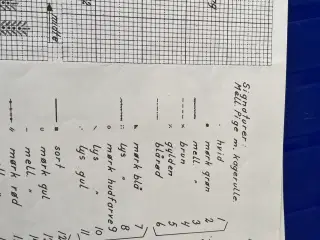 midte
Signaturer:
Mell. Pige m. kagerulle.
· hvid 1
mørk grøn 2
mell. " 3
brun 4
gylden 5
blårød 6
mørk blå 7
lys " 8
mørk hudfarve 9
lys " 10
lys gul 11
sort 12
mørk gul
mell. "
mørk rød